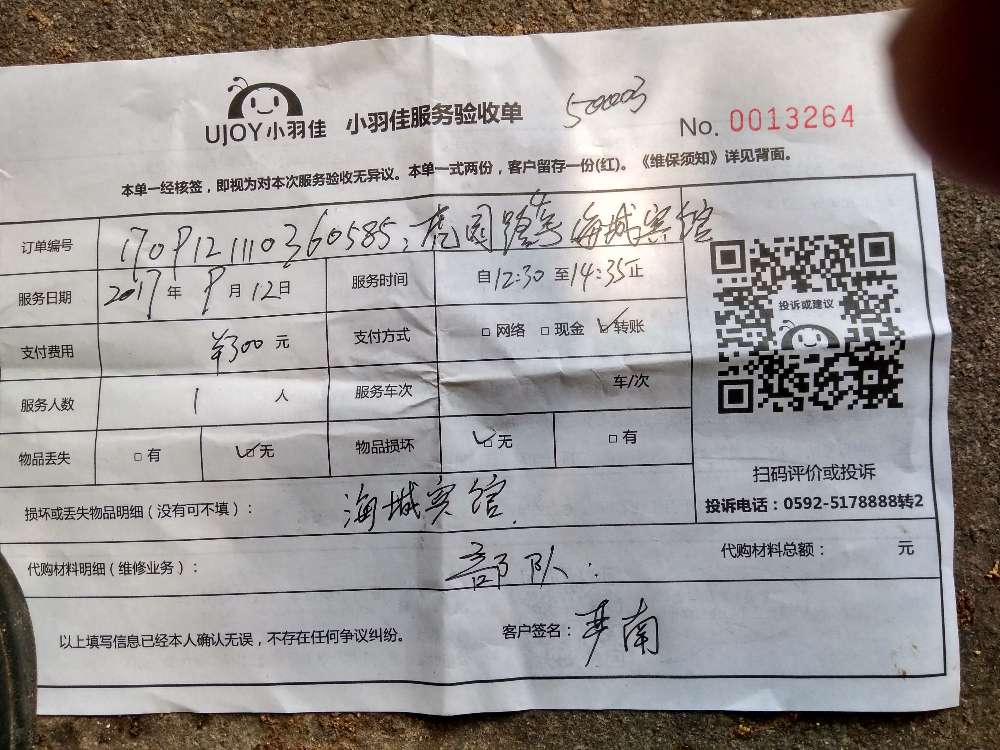 UJOY小羽佳 小羽佳服务验收单 50003 No. 0013264
本单一经核签，即视为对本次服务验收无异议。本单一式两份，客户留存一份(红)。《维保须知》详见背面。
订单编号 1709121110360585，虎园路4号海城宾馆
服务日期 2017年9月12日 服务时间 自12:30 至14:35止
支付费用 ¥300 元 支付方式 □网络 □现金 ☑转账
投诉或建议
服务人数 1 人 服务车次 车/次
物品丢失 □有 ☑无 物品损坏 ☑无 □有
扫码评价或投诉
投诉电话：0592-5178888转2
损坏或丢失物品明细（没有可不填）： 海城宾馆
代购材料明细（维修业务）： 部队. 代购材料总额： 元
以上填写信息已经本人确认无误，不存在任何争议纠纷。 客户签名： 南